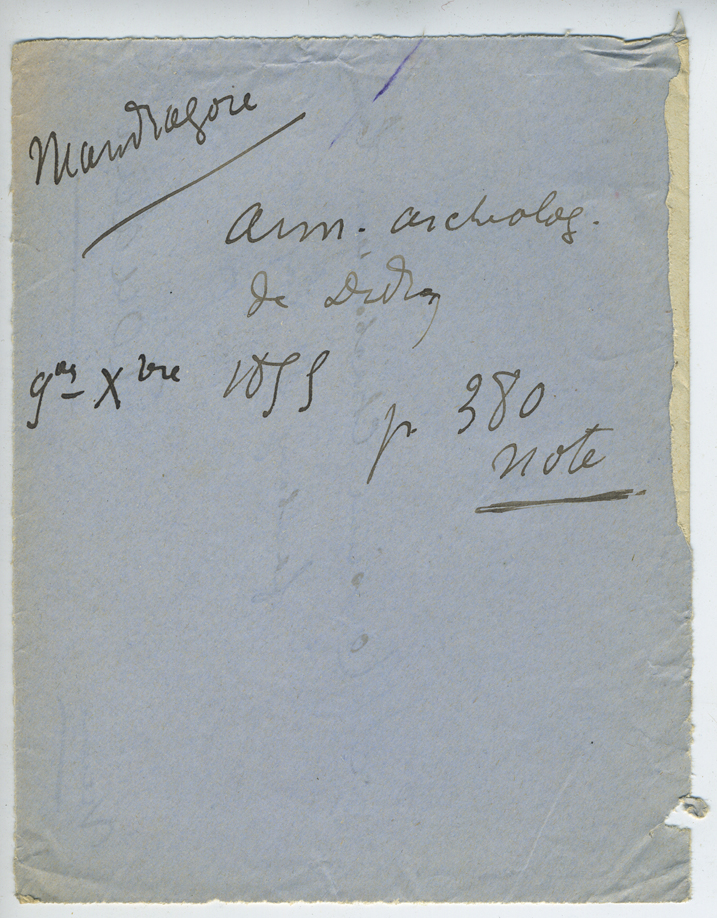 Mandragore
Ann. archéolog.
de Didron
9bre Xbre 1855
p. 380
note